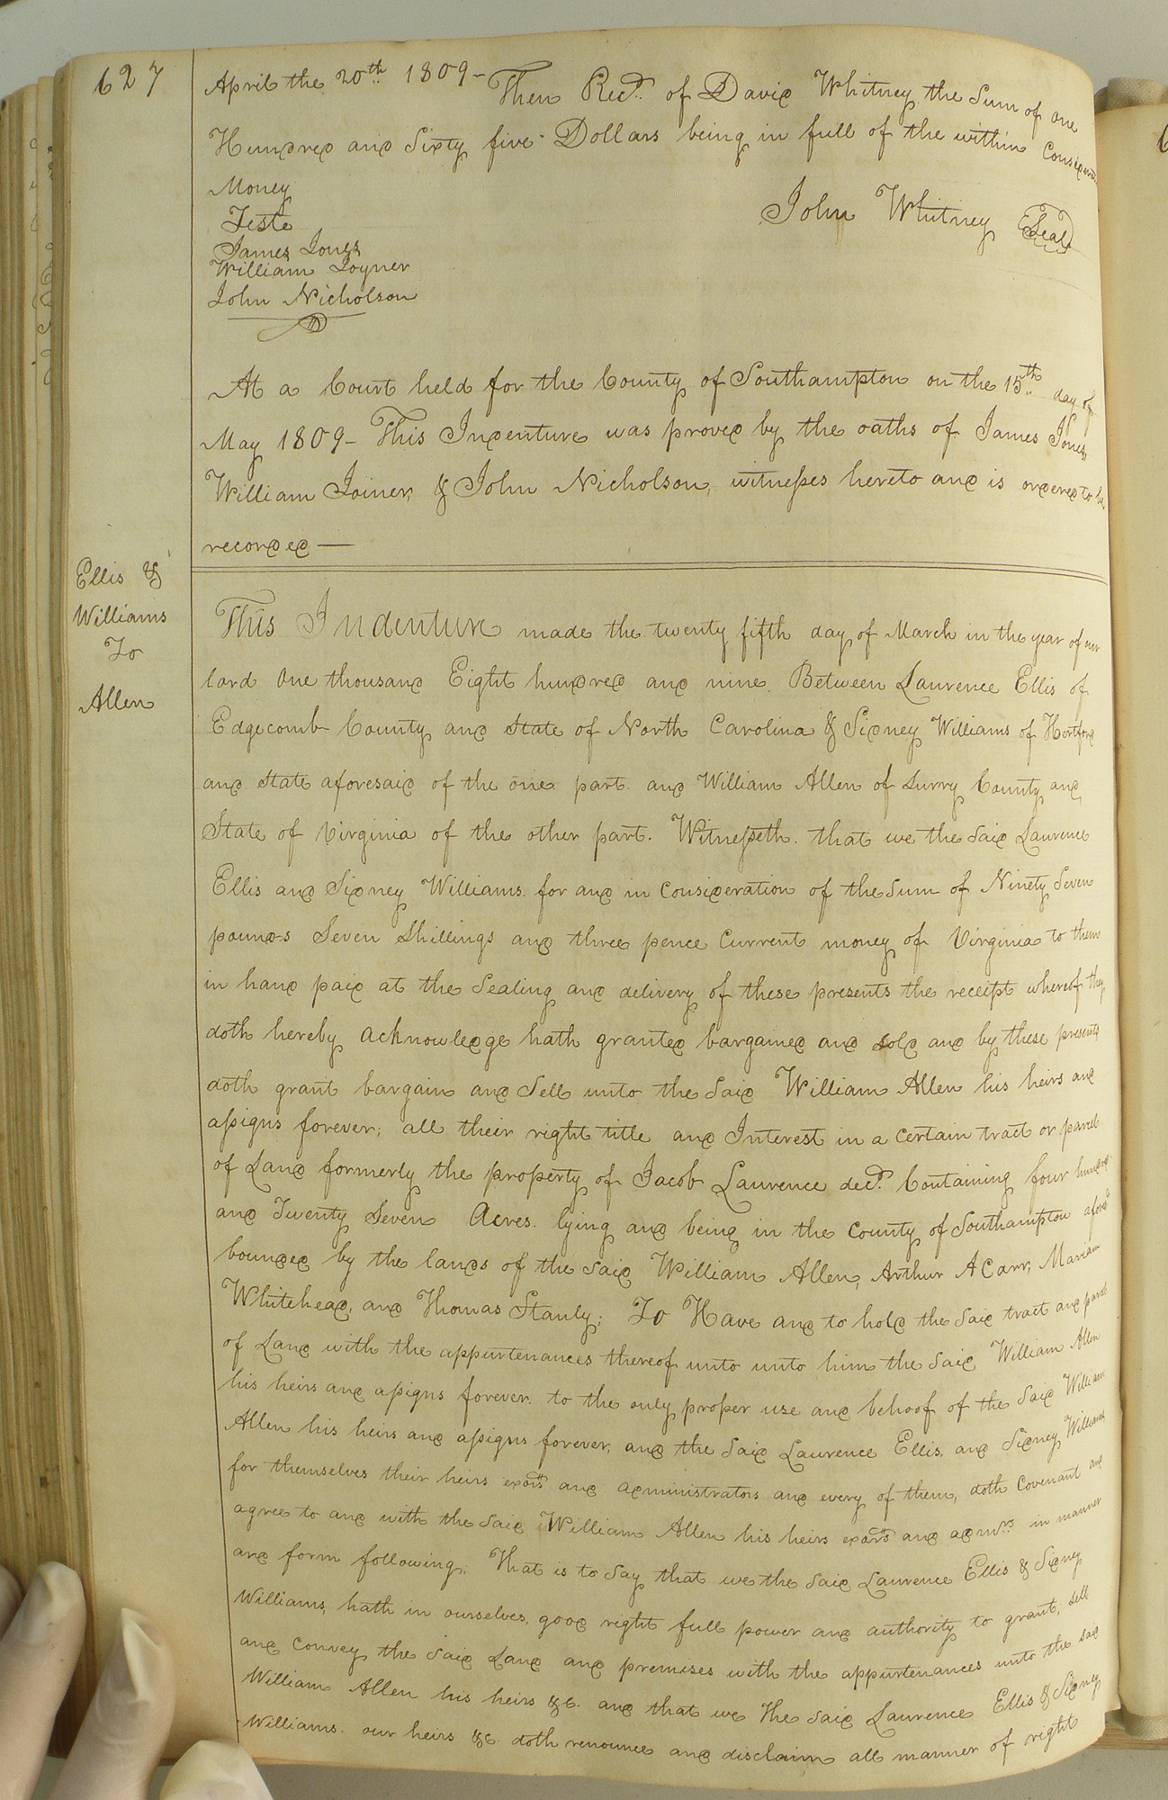 627
April the 20th 1809 - Then Recd. of David Whitney the Sum of one
Hundred and Sixty five Dollars being in full of the within
Money
John Whitney Seal
Teste
James Jones
William Joyner
John Nicholson
At a Court held for the County of Southampton on the 15th day of
May 1809 - This Indenture was proved by the oaths of James Jones
William Joiner, & John Nicholson, witnesses hereto and is ordered to be
recorded —
Ellis &
Williams
To
Allen
This Indenture made the twenty fifth day of March in the year of our
lord One thousand Eight hundred and nine. Between Laurence Ellis of
Edgecomb County and State of North Carolina & Sidney Williams of Hertford
and State aforesaid of the one part. and William Allen of Surry County and
State of Virginia of the other part. Witnesseth. that we the Said Laurence
Ellis and Sidney Williams. for and in Consideration of the Sum of Ninety Seven
pounds Seven Shillings and three pence Current money of Virginia to them
in hand paid at the Sealing and delivery of these presents the receipt whereof they
doth hereby acknowledge hath granted bargained and sold and by these presents
doth grant bargain and Sell unto the Said William Allen his heirs and
assigns forever; all their right title and Interest in a Certain tract or parcel
of Land formerly the property of Jacob Laurence decd. Containing four hundred
and Twenty Seven Acres. lying and being in the County of Southampton aforesd
bounded by the lands of the Said William Allen, Arthur A Carr, Mariam
Whitehead, and Thomas Stanly; To Have and to hold the Said tract and parcel
of Land with the appurtenances thereof unto unto him the Said William Allen
his heirs and assigns forever. to the only proper use and behoof of the Said William
Allen his heirs and assigns forever, and the Said Laurence Ellis, and Sidney Williams
for themselves their heirs exors and administrators and every of them, doth Covenant and
agree to and with the Said William Allen his heirs exors and admrs in manner
and form following; That is to Say that we the Said Laurence Ellis & Sidney
Williams, hath in ourselves, good right full power and authority to grant, sell
and Convey the Said Land and premises with the appurtenances unto the said
William Allen his heirs &c. and that we The Said Laurence Ellis & Sidney
Williams. our heirs &c doth renounce and disclaim all manner of right